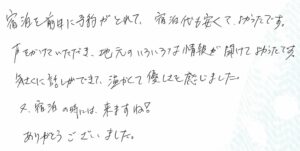 宿泊を前日に予約がとれて、宿泊代も安くて、よかったです。
声をかけていただき、地元のいろいろな情報が聞けてよかったです。
気さくに話しができて、温かくて優しさを感じました。
又、宿泊の時には、来ますね!
ありがとうございました。